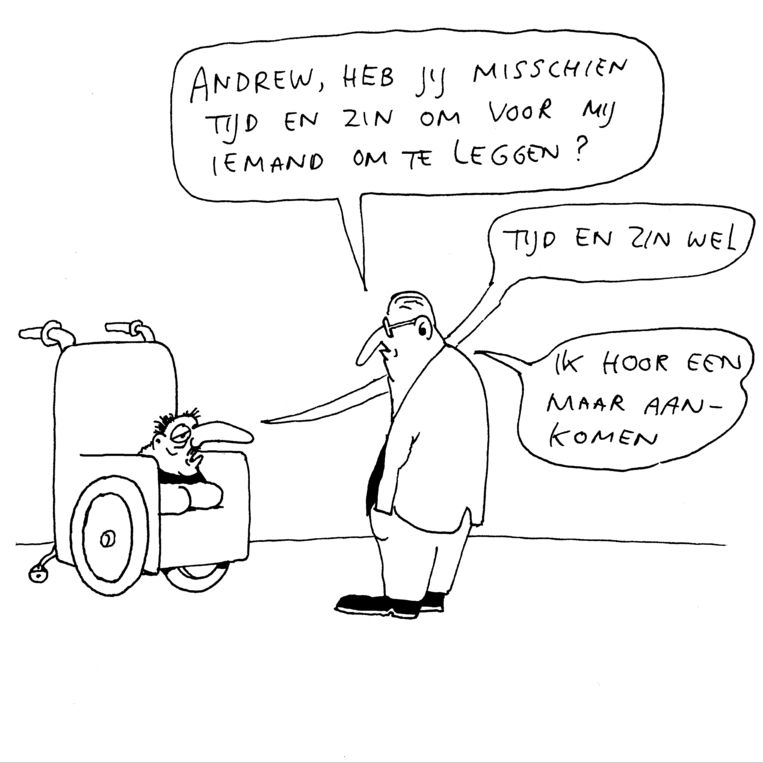 ANDREW, HEB JIJ MISSCHIEN
TIJD EN ZIN OM VOOR MIJ
IEMAND OM TE LEGGEN?
TIJD EN ZIN WEL
IK HOOR EEN
MAAR AAN-
KOMEN